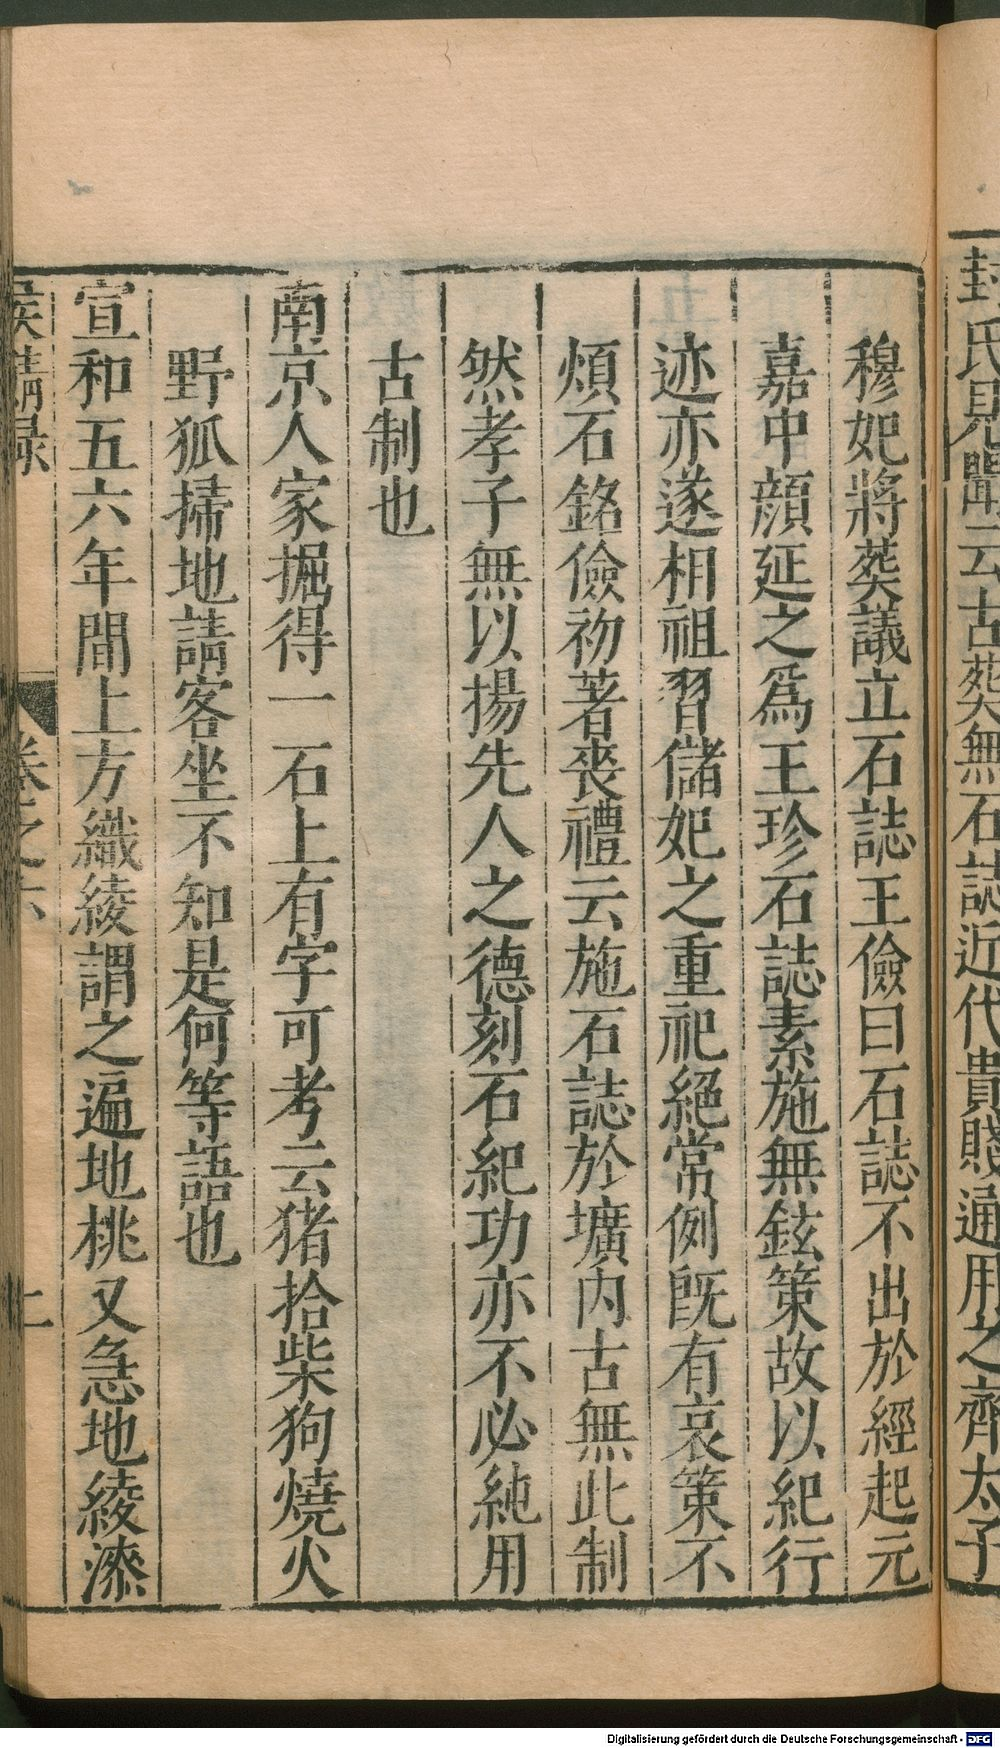 封氏見聞云古葬無石誌近代貴賤通用之齊太子
穆妃將葬議立石誌王儉曰石誌不出於經起元
嘉中顏延之爲王珍石誌素施無鉉策故以紀行
迹亦遂相祖習儲妃之重祀絕常例旣有哀策不
煩石銘儉初著喪禮云施石誌於壙內古無此制
然孝子無以揚先人之德刻石紀功亦不必純用
古制也
南京人家掘得一石上有字可考云猪拾柴狗燒火
野狐掃地請客坐不知是何等語也
宣和五六年間上方織綾謂之遍地桃又急地綾漆
侯鯖錄
卷之六
上
Digitalisierung gefördert durch die Deutsche Forschungsgemeinschaft - DFG